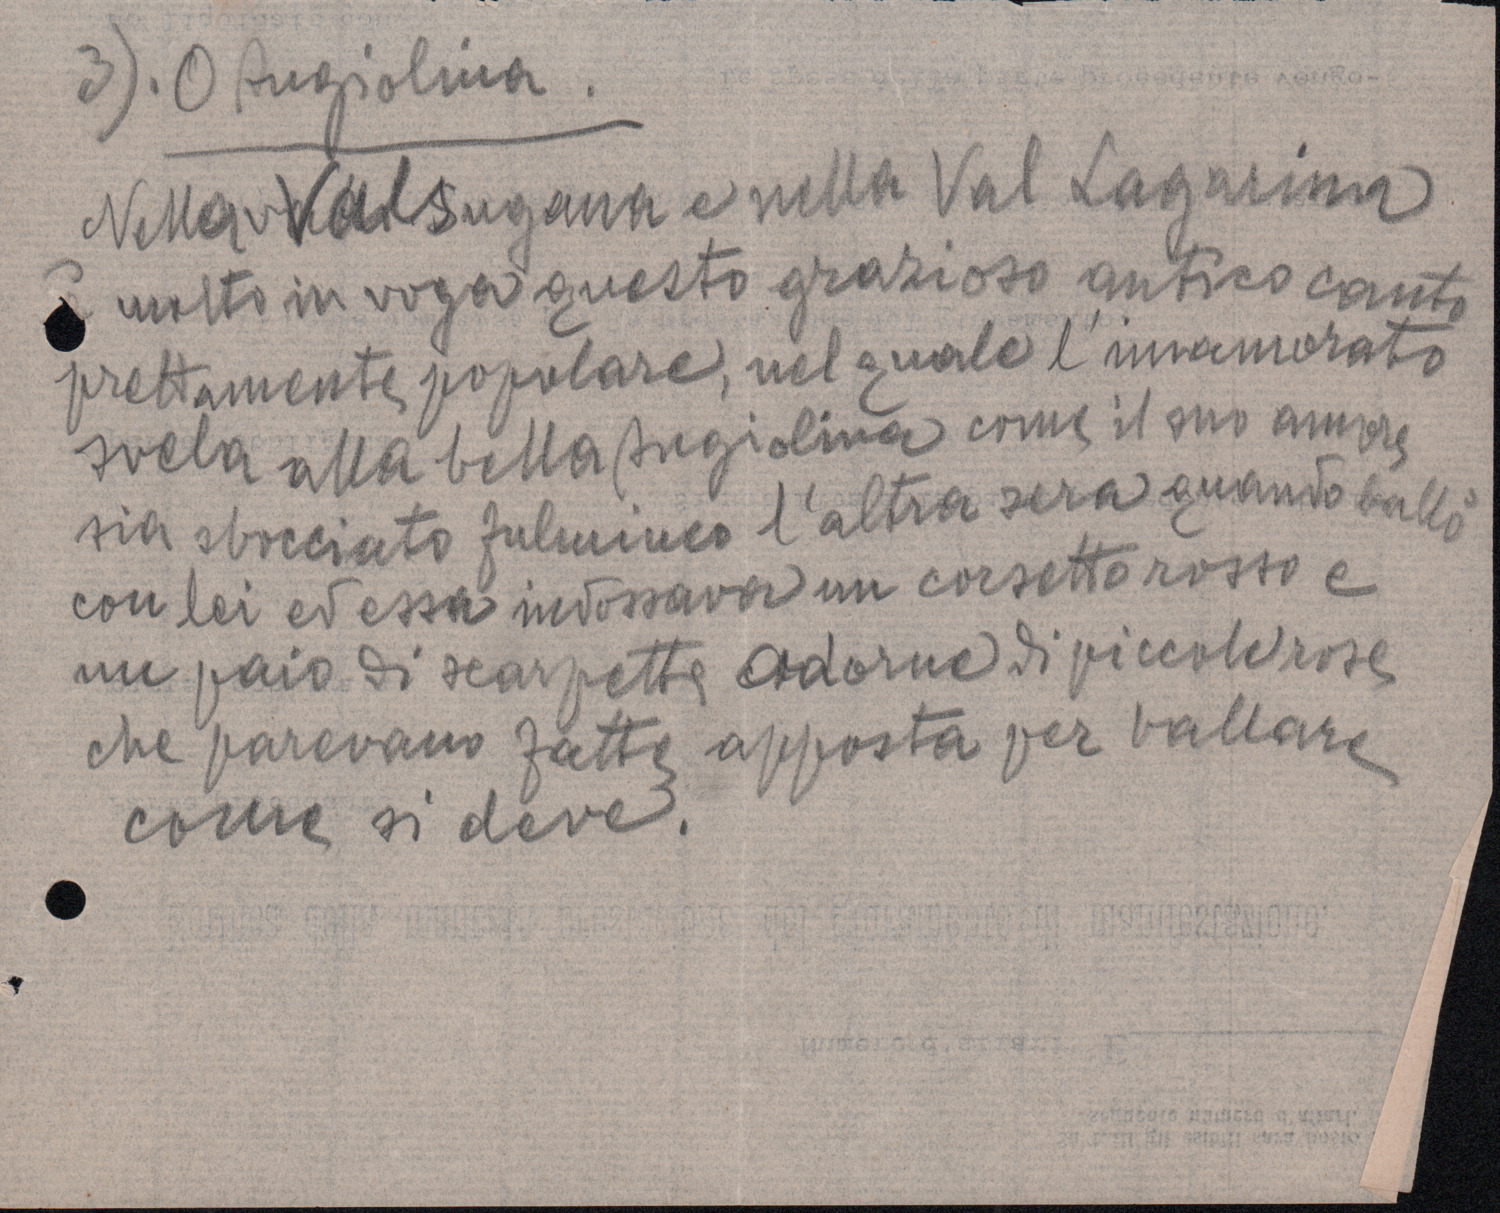 3). O Angiolina.
Nella Valsugana e nella Val Lagarina
è molto in voga questo grazioso antico canto
prettamente popolare, nel quale l'innamorato
svela alla bella Angiolina come il suo amore
sia sbocciato fulmineo l'altra sera quando ballò
con lei ed essa indossava un corsetto rosso e
un paio di scarpette adorne di piccole rose
che parevano fatte apposta per ballare
come si deve.